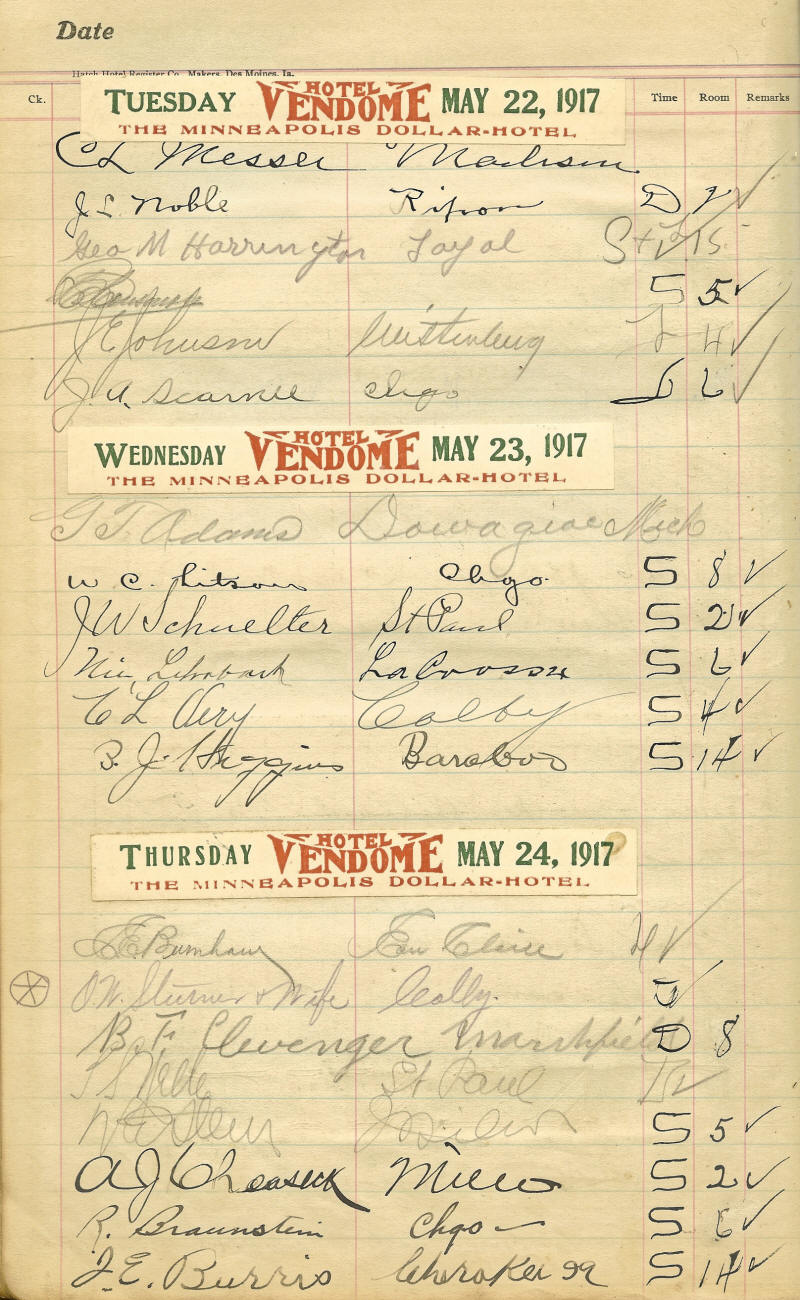 Date
Hatch Hotel Register Co., Makers, Des Moines, Ia.
Ck. Time Room Remarks
TUESDAY HOTEL VENDOME MAY 22, 1917
THE MINNEAPOLIS DOLLAR-HOTEL
C L Messer Madison
J. L. Noble Ripon D
Geo M Harrington Loyal
S 5 ✓
J E Johnson Wittenberg 4 ✓
J. A. Chgo 6 ✓
WEDNESDAY HOTEL VENDOME MAY 23, 1917
THE MINNEAPOLIS DOLLAR-HOTEL
G T Adams Dowagiac Mich
W C. Litson Chgo. S 8 ✓
J W Schuelter St Paul S 2 ✓
LaCrosse S 6 ✓
C L Very Colby S 4 ✓
B. J. Higgins Baraboo S 14 ✓
THURSDAY HOTEL VENDOME MAY 24, 1917
THE MINNEAPOLIS DOLLAR-HOTEL
Burnham Eau Claire ✓
O W. Sturner & Wife Colby. ✓
B. F. Clevenger Marshfield D 8
St Paul
S 5 ✓
A J S 2 ✓
R. Braunstein Chgo S 6 ✓
J. E. Burris Cherokee S 14 ✓